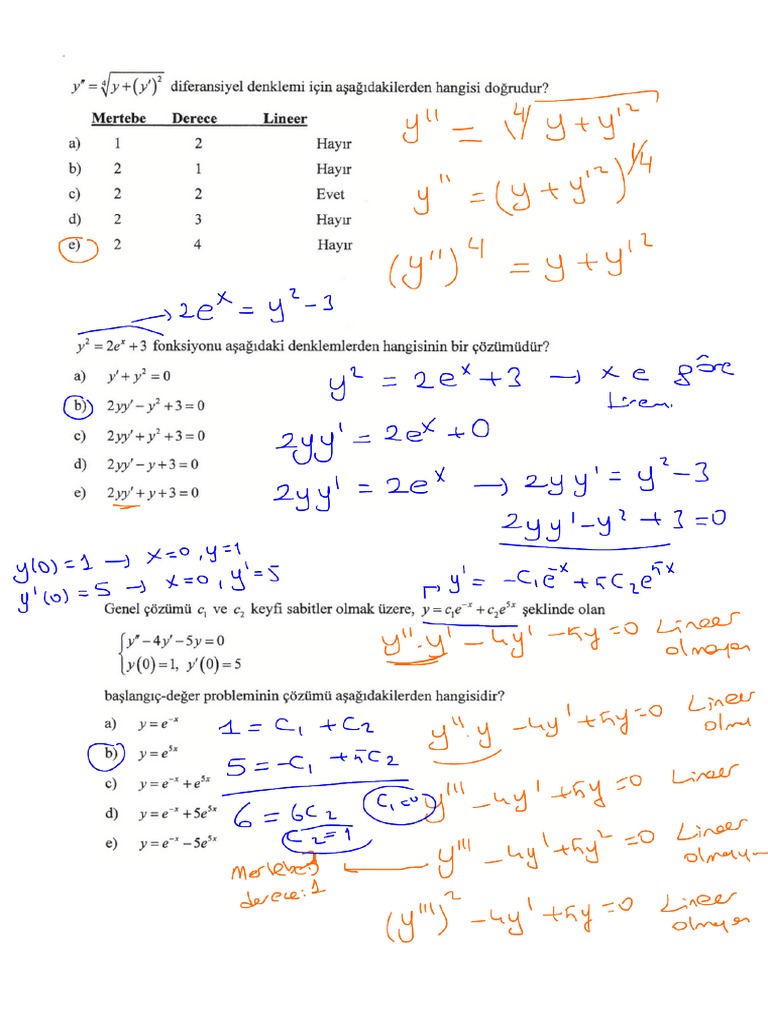 y'' = ⁴√(y+(y')²) diferansiyel denklemi için aşağıdakilerden hangisi doğrudur?
Mertebe Derece Lineer
a) 1 2 Hayır
b) 2 1 Hayır
c) 2 2 Evet
d) 2 3 Hayır
e) 2 4 Hayır
y'' = ⁴√(y+y'²)
y'' = (y+y'²)^1/4
(y'')⁴ = y+y'²
→ 2eˣ = y²-3
y² = 2eˣ +3 fonksiyonu aşağıdaki denklemlerden hangisinin bir çözümüdür?
a) y' + y² = 0
b) 2yy' - y² + 3 = 0
c) 2yy' + y² + 3 = 0
d) 2yy' - y + 3 = 0
e) 2yy' + y + 3 = 0
y² = 2eˣ+3 → x e göre
2yy' = 2eˣ+0
2yy' = 2eˣ → 2yy' = y²-3
2yy'-y²+3=0
y(0)=1 → x=0, y=1
y'(0)=5 → x=0, y'=5
y' = -c₁e⁻ˣ+5c₂e⁵ˣ
Genel çözümü c₁ ve c₂ keyfi sabitler olmak üzere, y = c₁e⁻ˣ + c₂e⁵ˣ şeklinde olan
{ y'' - 4y' - 5y = 0
y(0) = 1, y'(0) = 5
başlangıç-değer probleminin çözümü aşağıdakilerden hangisidir?
a) y = e⁻ˣ
b) y = e⁵ˣ
c) y = e⁻ˣ + e⁵ˣ
d) y = e⁻ˣ + 5e⁵ˣ
e) y = e⁻ˣ - 5e⁵ˣ
1 = c₁ + c₂
5 = -c₁ + 5c₂
6 = 6c₂
c₁=0
c₂=1
y''.y' - 4y' - 5y = 0 Lineer
olmayan
y''.y - 4y' + 5y = 0 Lineer
y''' - 4y' + 5y = 0 Lineer
y''' - 4y' + 5y² = 0 Lineer
Mertebe:3
derece:1
(y''')² - 4y' + 5y = 0 Lineer
olmayan